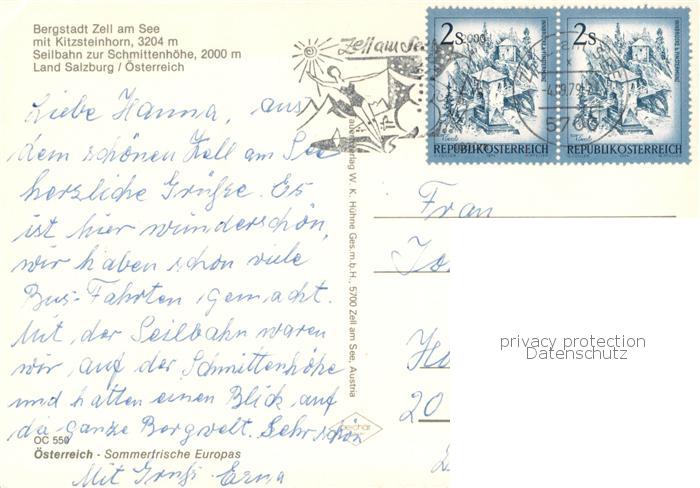 Bergstadt Zell am See
mit Kitzsteinhorn, 3204 m
Seilbahn zur Schmittenhöhe, 2000 m
Land Salzburg / Österreich
Zell am See
2 S
2 S
REPUBLIK ÖSTERREICH
REPUBLIK ÖSTERREICH
5700
Liebe Hanna, aus
dem schönen Zell am See
herzliche Grüße. Es
ist hier wunderschön,
wir haben schon viele
Bus-Fahrten gemacht.
Mit der Seilbahn waren
wir auf der Schmittenhöhe
und hatten einen Blick auf
da ganze Bergwelt. Sehr schön
Mit Gruß Erna
OC 550
Österreich - Sommerfrische Europas
Verlag W. K. Hühne Ges.m.b.H., 5700 Zell am See, Austria
Frau
20
privacy protection
Datenschutz